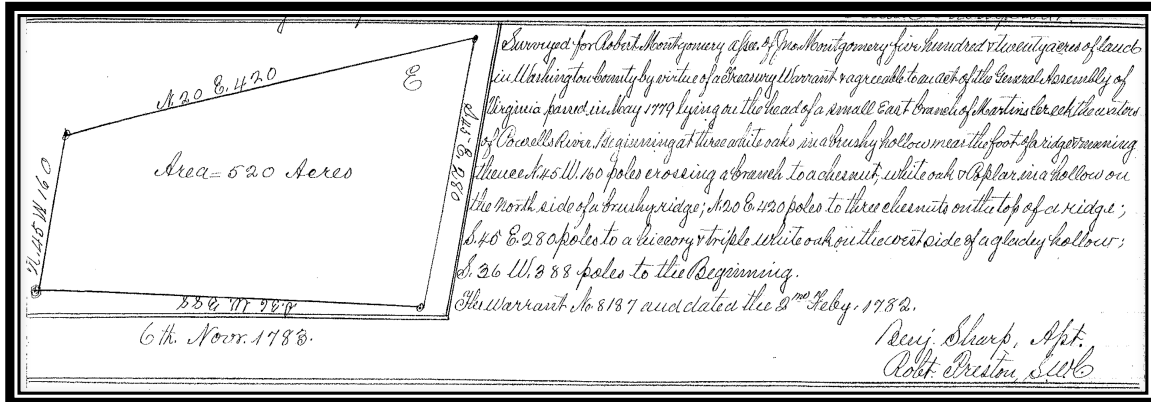 N. 20 E. 420
E
Area = 520 Acres
N. 45 W 160
S. 45 E. 280
S. 36 W. 388
6th. Novr. 1783.
Surveyed for Robert Montgomery assee. of Jno. Montgomery five hundred & twenty acres of land
in Washington County by virtue of a Treasury Warrant & agreeable to an act of the General Assembly of
Virginia passed in May 1779 lying on the head of a small East branch of Martins Creek the waters
of Powells River. Beginning at three white oaks in a brushy hollow near the foot of a ridge & running
thence N.45 W. 160 poles crossing a branch to a chesnut, white oak & Poplar in a hollow on
the north side of a brushy ridge; N.20 E. 420 poles to three chesnuts on the top of a ridge;
S. 45 E. 280 poles to a hiccory & triple white oak on the west side of a gladey hollow;
S. 36 W. 388 poles to the Beginning.
The Warrant No. 8187 and dated the 2nd Feby. 1782.
Benj. Sharp, Asst.
Robt. Preston, S.W.C